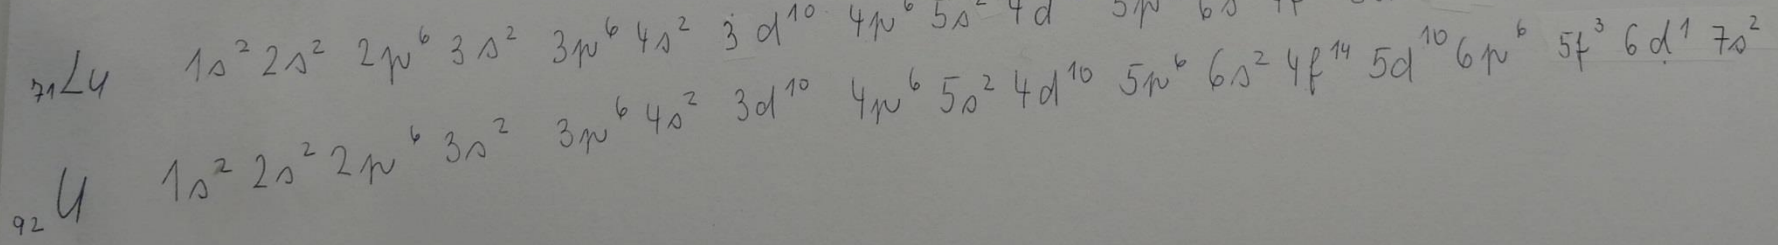 ₇₁Lu 1s² 2s² 2p⁶ 3s² 3p⁶ 4s² 3d¹⁰ 4p⁶ 5s² 4d 5p 6s
₉₂U 1s² 2s² 2p⁶ 3s² 3p⁶ 4s² 3d¹⁰ 4p⁶ 5s² 4d¹⁰ 5p⁶ 6s² 4f¹⁴ 5d¹⁰ 6p⁶ 5f³ 6d¹ 7s²